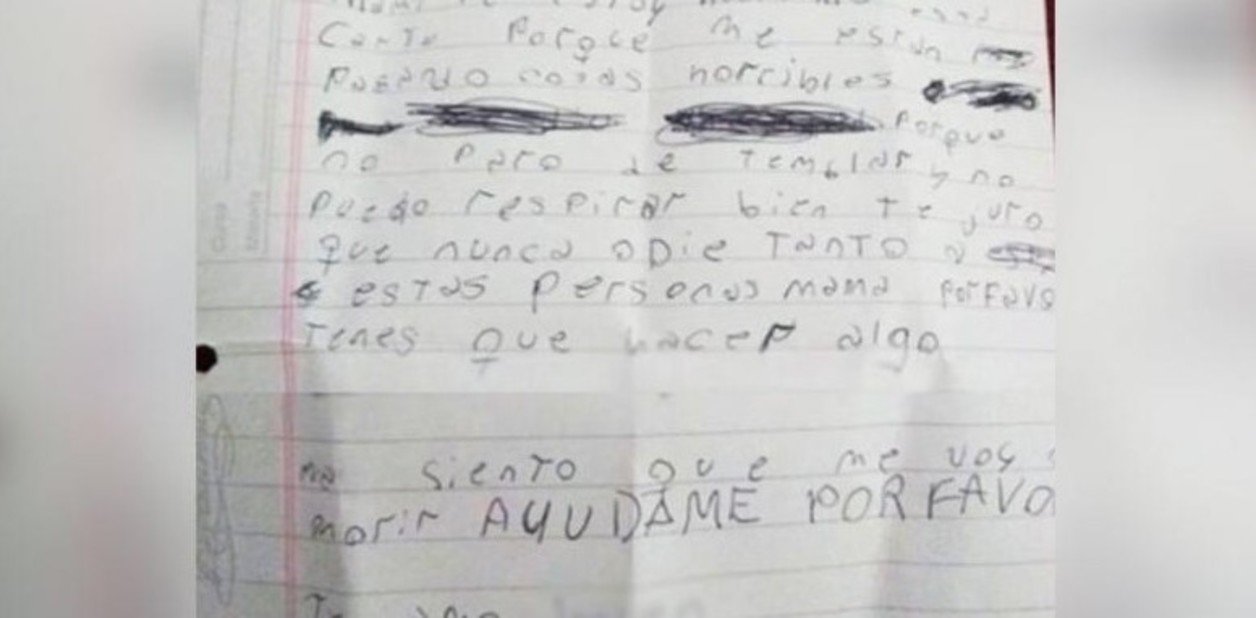 carta Porque me están
Pasando cosas horribles
Porque
no Paro de Temblar y no
Puedo respirar bien Te juro
que nunca odie TanTo a
a esTas Personas mama PorFavo
Tenes que hacer algo
sienTo que me voy a
morir AYUDAME POR FAVO